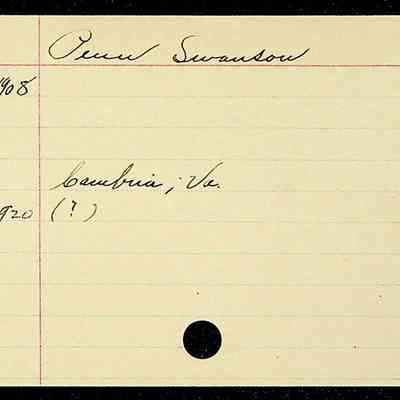 Penn Swanson
1908
Cambria, Va.
1920 (?)